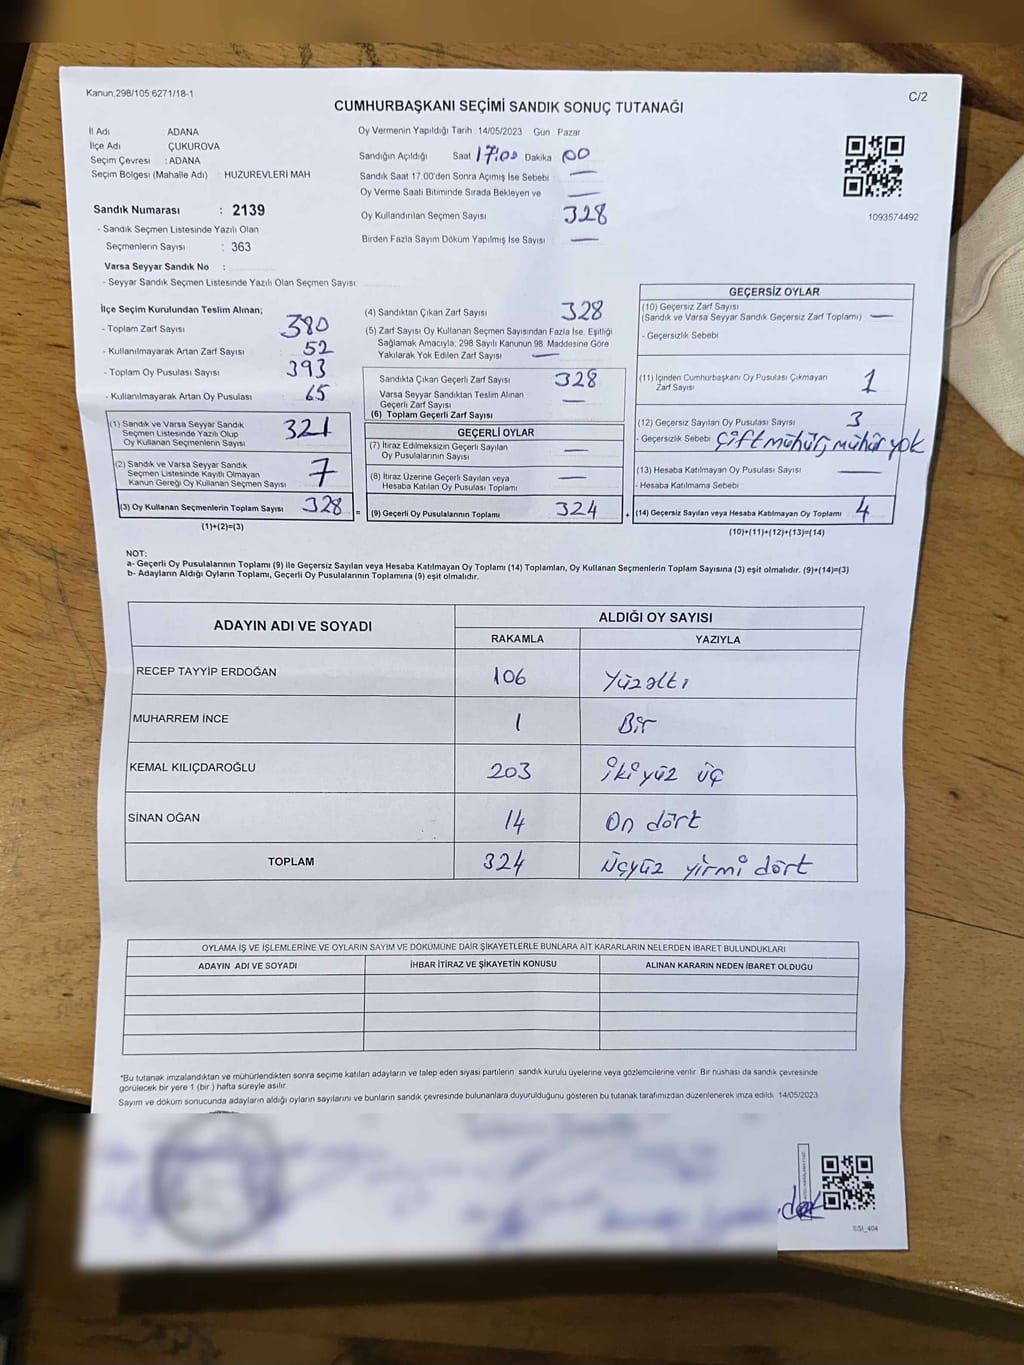 Kanun,298/105:6271/18-1
C/2
CUMHURBAŞKANI SEÇİMİ SANDIK SONUÇ TUTANAĞI
İl Adı : ADANA
İlçe Adı : ÇUKUROVA
Seçim Çevresi : ADANA
Seçim Bölgesi (Mahalle Adı) HUZUREVLERİ MAH
Sandık Numarası : 2139
- Sandık Seçmen Listesinde Yazılı Olan
Seçmenlerin Sayısı : 363
Varsa Seyyar Sandık No :
- Seyyar Sandık Seçmen Listesinde Yazılı Olan Seçmen Sayısı:
Oy Vermenin Yapıldığı Tarih : 14/05/2023 Gün Pazar
Sandığın Açıldığı Saat 17:00 Dakika 00
Sandık Saat 17.00'den Sonra Açımış İse Sebebi —
Oy Verme Saati Bitiminde Sırada Bekleyen ve —
Oy Kullandırılan Seçmen Sayısı 328
Birden Fazla Sayım Döküm Yapılmış İse Sayısı —
1093574492
İlçe Seçim Kurulundan Teslim Alınan;
- Toplam Zarf Sayısı 380
- Kullanılmayarak Artan Zarf Sayısı 52
- Toplam Oy Pusulası Sayısı 393
- Kullanılmayarak Artan Oy Pusulası 65
(1) Sandık ve Varsa Seyyar Sandık
Seçmen Listesinde Yazılı Olup
Oy Kullanan Seçmenlerin Sayısı 321
(2) Sandık ve Varsa Seyyar Sandık
Seçmen Listesinde Kayıtlı Olmayan
Kanun Gereği Oy Kullanan Seçmen Sayısı 7
(3) Oy Kullanan Seçmenlerin Toplam Sayısı 328 =
(1)+(2)=(3)
(4) Sandıktan Çıkan Zarf Sayısı 328
(5) Zarf Sayısı Oy Kullanan Seçmen Sayısından Fazla İse, Eşitliği
Sağlamak Amacıyla, 298 Sayılı Kanunun 98. Maddesine Göre
Yakılarak Yok Edilen Zarf Sayısı —
Sandıkta Çıkan Geçerli Zarf Sayısı 328
Varsa Seyyar Sandıktan Teslim Alınan
Geçerli Zarf Sayısı —
(6) Toplam Geçerli Zarf Sayısı
GEÇERLİ OYLAR
(7) İtiraz Edilmeksizin Geçerli Sayılan
Oy Pusulalarının Sayısı —
(8) İtiraz Üzerine Geçerli Sayılan veya
Hesaba Katılan Oy Pusulası Toplamı —
(9) Geçerli Oy Pusulalarının Toplamı 324 +
GEÇERSİZ OYLAR
(10) Geçersiz Zarf Sayısı
(Sandık ve Varsa Seyyar Sandık Geçersiz Zarf Toplamı) —
- Geçersizlik Sebebi
(11) İçinden Cumhurbaşkanı Oy Pusulası Çıkmayan
Zarf Sayısı 1
(12) Geçersiz Sayılan Oy Pusulası Sayısı 3
- Geçersizlik Sebebi çift mühür, mühür yok
(13) Hesaba Katılmayan Oy Pusulası Sayısı —
- Hesaba Katılmama Sebebi
(14) Geçersiz Sayılan veya Hesaba Katılmayan Oy Toplamı 4
(10)+(11)+(12)+(13)=(14)
NOT:
a- Geçerli Oy Pusulalarının Toplamı (9) ile Geçersiz Sayılan veya Hesaba Katılmayan Oy Toplamı (14) Toplamları, Oy Kullanan Seçmenlerin Toplam Sayısına (3) eşit olmalıdır. (9)+(14)=(3)
b- Adayların Aldığı Oyların Toplamı, Geçerli Oy Pusulalarının Toplamına (9) eşit olmalıdır.
ADAYIN ADI VE SOYADI
ALDIĞI OY SAYISI
RAKAMLA YAZIYLA
RECEP TAYYİP ERDOĞAN 106 Yüzaltı
MUHARREM İNCE 1 Bir
KEMAL KILIÇDAROĞLU 203 İkiyüz üç
SİNAN OĞAN 14 On dört
TOPLAM 324 Üçyüz yirmi dört
OYLAMA İŞ VE İŞLEMLERİNE VE OYLARIN SAYIM VE DÖKÜMÜNE DAİR ŞİKAYETLERLE BUNLARA AİT KARARLARIN NELERDEN İBARET BULUNDUKLARI
ADAYIN ADI VE SOYADI İHBAR İTİRAZ VE ŞİKAYETİN KONUSU ALINAN KARARIN NEDEN İBARET OLDUĞU
*Bu tutanak imzalandıktan ve mühürlendikten sonra seçime katılan adayların ve talep eden siyasi partilerin sandık kurulu üyelerine veya gözlemcilerine verilir. Bir nüshası da sandık çevresinde
görülecek bir yere 1 (bir ) hafta süreyle asılır.
Sayım ve döküm sonucunda adayların aldığı oyların sayılarını ve bunların sandık çevresinde bulunanlara duyurulduğunu gösteren bu tutanak tarafımızdan düzenlenerek imza edildi. 14/05/2023